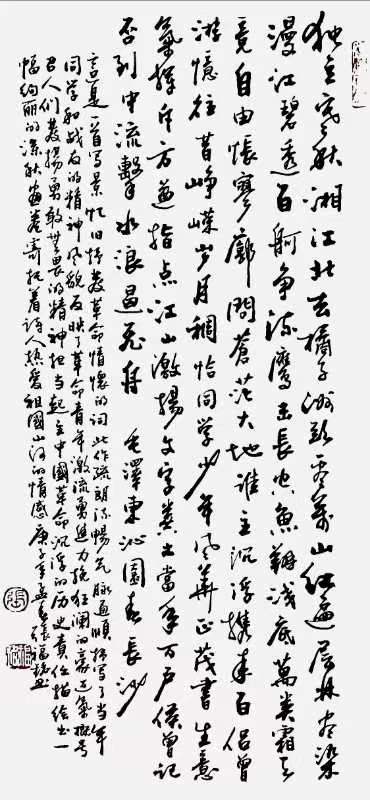 独立寒秋湘江北去橘子洲头看萬山红遍层林尽染
漫江碧透百舸争流鹰击長空魚翔浅底萬类霜天
竞自由怅寥廓問蒼茫大地谁主沉浮携来百侣曾
游憶往昔峥嵘岁月稠恰同学少年风華正茂書生意
氣揮斥方遒指点江山激揚文字粪土當年万户侯曾记
否到中流擊水浪遏飛舟 毛澤東沁園春長沙
這是一首写景忆旧抒發革命情懷的词此作疏朗流暢气脉通順抒写了当年
同学和战友的精神风貌反映了革命青年激流勇進力挽狂瀾的豪迈氣概号
召人们發揚勇敢無畏的精神担当起主中國革命沉浮的历史責任描绘出一
幅绚丽的深秋画卷寄托着诗人热爱祖國山河的情感庚子年孟春張